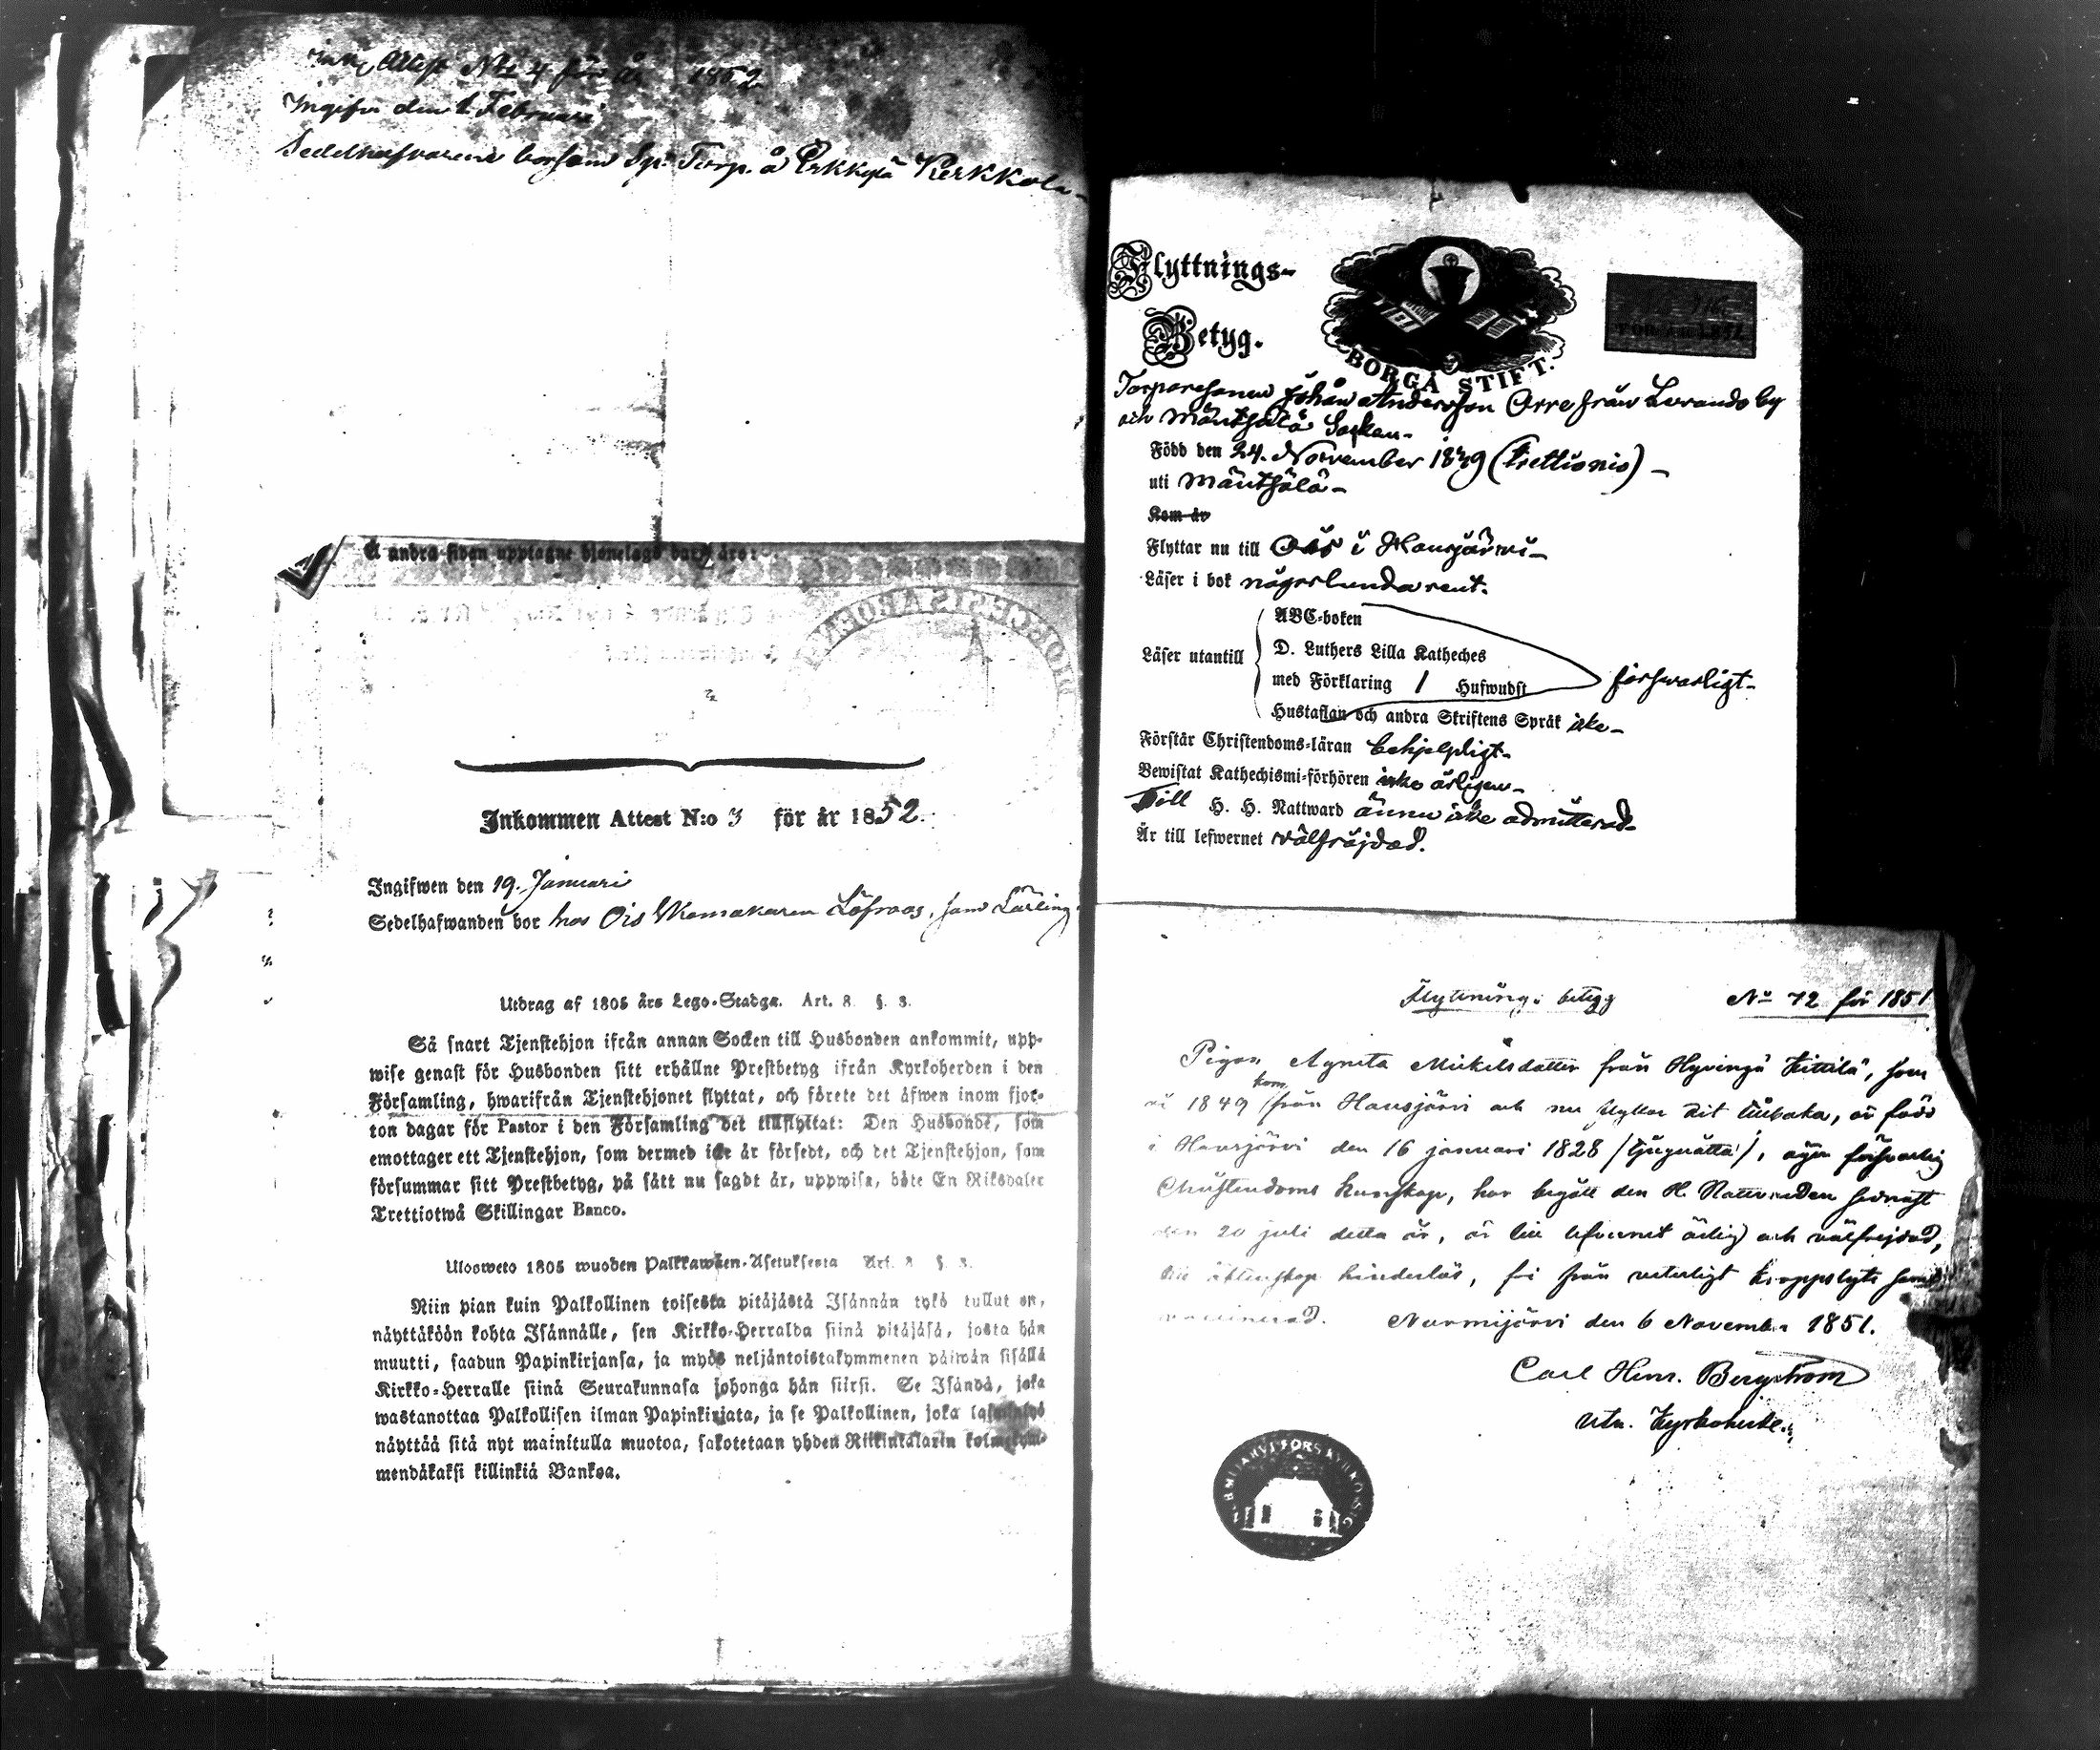 Attest No 4 för år 1852
Ingifven den 1 Februari
Sedelhafvaren bor som Torp. å Erkkylä Kerkkola
å andra sidan upptagne tjenstehjon äro:
Inkommen Attest N:o 3 för år 1852.
Ingifwen den 19. Januari
Sedelhafwanden bor hos Ois Löfroos, som Lärling
Utdrag af 1805 års Lego-Stadga. Art. 8. §. 3.
Så snart Tjenstehjon ifrån annan Socken till Husbonden ankommit, upp-
wise genast för Husbonden sitt erhållne Prestbetyg ifrån Kyrkoherden i den
Församling, hwarifrån Tjenstehjonet flyttat, och förete det äfwen inom fjor-
ton dagar för Pastor i den Församling det tillflyttat: Den Husbonde, som
emottager ett Tjenstehjon, som dermed icke är försedt, och det Tjenstehjon, som
försummar sitt Prestbetyg, på sätt nu sagdt är, uppwisa, böte En Riksdaler
Trettiotwå Skillingar Banco.
Ulosweto 1805 wuoden Palkkawäen-Asetuksesta Art. 8 §. 3.
Niin pian kuin Palkollinen toisesta pitäjästä Isännän tykö tullut on,
näyttäköön kohta Isännälle, sen Kirkko-Herralda siinä pitäjäsä, josta hän
muutti, saadun Papinkirjansa, ja myös neljäntoistakymmenen päiwän sisällä
Kirkko-Herralle siinä Seurakunnasa johonga hän siirsi. Se Isändä, joka
wastanottaa Palkollisen ilman Papinkirjata, ja se Palkollinen, joka
näyttää sitä nyt mainitulla muotoa, sakotetaan yhden Riikintalarin kolmekym-
mendäkaksi killinkiä Bankoa.
Flyttnings-
Betyg.
BORGÅ STIFT.
Torparesonen Johan Andersson Orre från Levando by
och Mäntsälä Socken.
Född den 24. November 1839 (trettionio)
uti Mäntsälä
Kom år
Flyttar nu till Ois i Hausjärvi
Läser i bok någorlunda rent.
Läser utantill
ABC-boken
D. Luthers Lilla Katheches
med Förklaring 1 Hufwudst
försvarligt
Hustaflan och andra Skriftens Språk icke
Förstår Christendoms-läran behjelpligt
Bewistat Kathechismi-förhören icke årligen
Till H. H. Nattward ännu icke admitterad
Är till lefwernet välfräjdad.
Flyttnings betyg No 72 för 1851
Pigan Agneta Mickelsdotter från Hyvingä Kittilä, som
kom
1849 från Hausjärvi och nu flyttar dit tillbaka, är född
i Hausjärvi den 16 januari 1828 /tjuguåtta/, äger försvarlig
Christendoms kunskap, har begått den H. Nattvarden sednast
den 20 juli detta år, är till lefvernet ärlig och välfrejdad,
till äktenskap hinderlös, fri från veterligt kroppslyte samt
vaccinerad. Nurmijärvi den 6 November 1851.
Carl Henr. Bergström